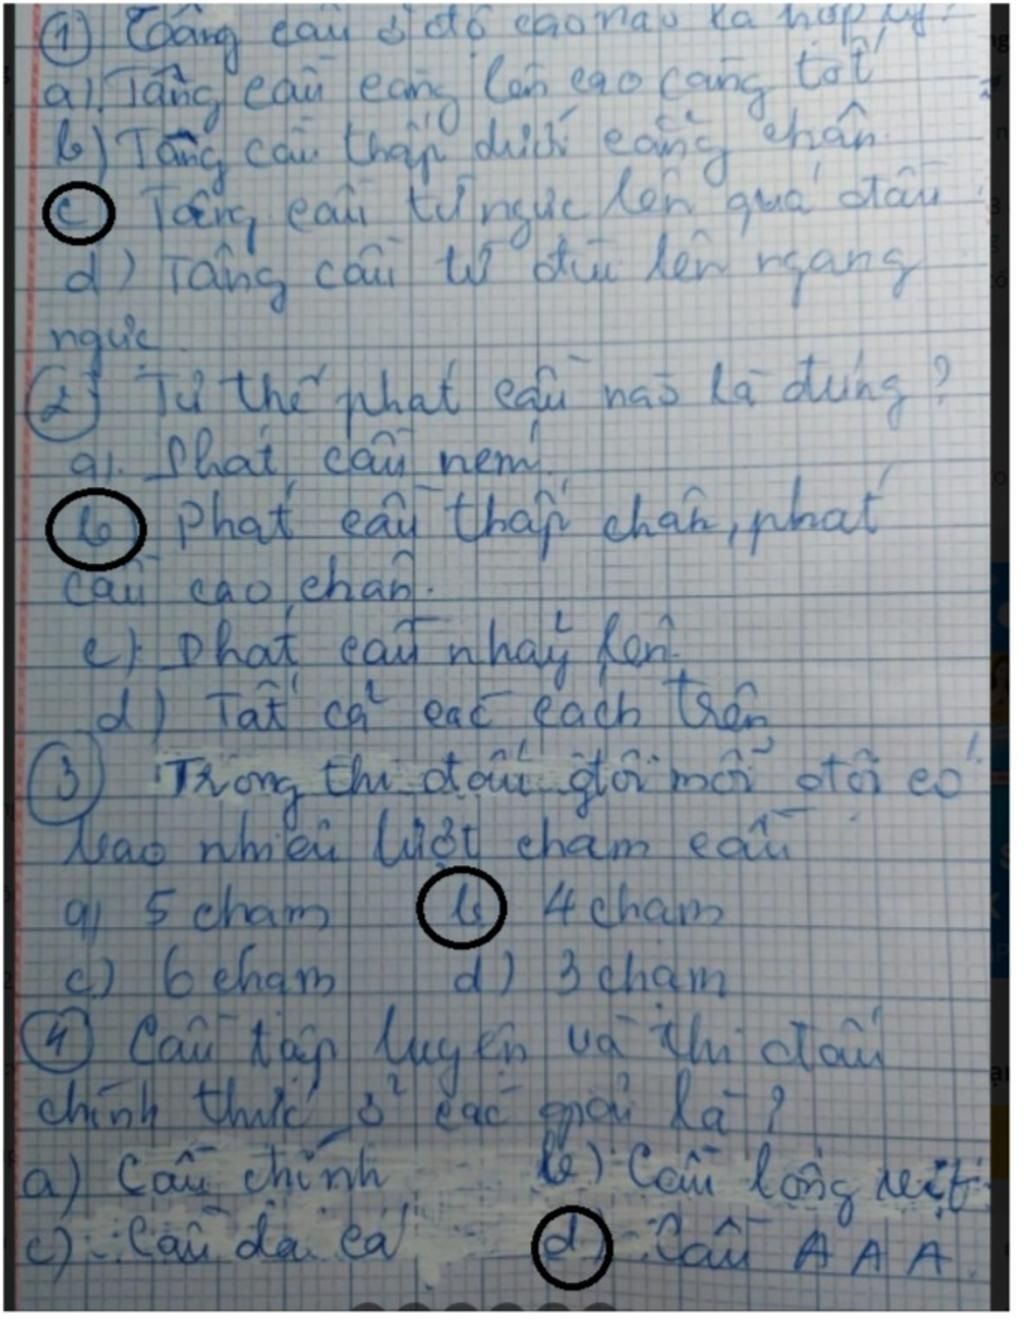 ① Tâng cầu ở độ cao nào là hợp lý?
a). Tâng cầu càng lên cao càng tốt
b) Tâng cầu thấp dưới cẳng chân
c Tâng cầu từ ngực lên quá đầu
d) Tâng cầu từ đùi lên ngang
ngực.
② Tư thế phát cầu nào là đúng?
a). Phát cầu ném.
b Phát cầu thấp chân, phát
cầu cao chân.
c) Phát cầu nhảy lên.
d) Tất cả các cách trên
③ Trong thi đấu đôi mỗi đội có
bao nhiêu lượt chạm cầu
a) 5 chạm b 4 chạm
c) 6 chạm d) 3 chạm
④ Cầu tập luyện và thi đấu
chính thức ở các giải là?
a) Cầu chinh b) Cầu lông vịt
c) Cầu đá cá d) Cầu AAA